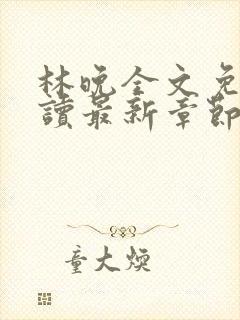 林晚全文免
讀最新章節
童大煥